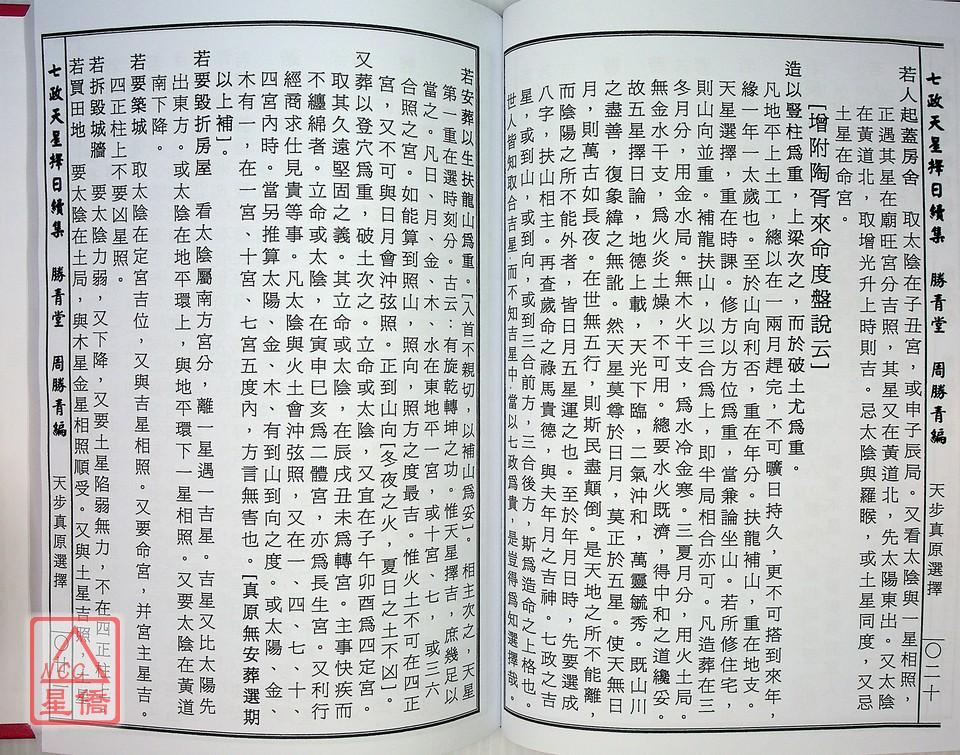 七政天星擇日續集 勝青堂 周勝青編 天步真原選擇 〇二十
若人起蓋房舍 取太陰在子丑宮，或申子辰局。又看太陰與一星相照，
正遇其星在廟旺宮分吉照，其星又在黃道北，先太陽東出。又太陰
在黃道北，取增光升上時則吉。忌太陰與羅睺，或土星同度，又忌
土星在命宮。
[增附陶胥來命度盤說云]
造以豎柱爲重，上梁次之，而於破土尤爲重。
凡地平上土工，總以在一兩月趕完，不可曠日持久，更不可搭到來年，
緣一年一太歲也。至於山向利否，重在年分。扶龍補山，重在地支。
天星選擇，重在時課。修方以方位爲重，當兼論坐山。若所修住宅，
則山向並重。補龍扶山，以三合爲上，即半局相合亦可。凡造葬在三
冬月分，用金水局。無木火干支，爲水冷金寒。三夏月分，用火土局。
無金水干支，爲火炎土燥，不可用。總要水火既濟，得中和之道纔妥。
故五星擇日論，地德上載，天光下臨，二氣沖和，萬靈毓秀。既山川
之盡善，復象緯之無訛。然天星莫尊於日月，莫正於五星。使天無日
月，則萬古如長夜。在世無五行，則斯民盡顛倒。是天地之所不能離，
而陰陽之所不能外者，皆日月五星運之也。至於年月日時，先要選成
八字，扶山相主。再查歲命之祿馬貴德，與夫年月之吉神。七政之吉
星，或到山，或到向，或到三合前方，三合後方，斯爲造命之上格也。
世人皆知取合吉星，而不知吉星中，當以七政爲貴，是豈得爲知選擇哉。
若安葬以生扶龍山爲重。[入首不親切，以補山爲妥] 相主次之，天星
第一重在選時刻分。古云：有旋乾轉坤之功。惟天星擇吉，庶幾足以
當之。凡日、月、金、木、水在東地平一宮，或十宮、七，或三六
合照之宮。如能算到照山，照向，照方之度最吉。惟火土不可在四正
宮，又不可與日月會沖弦照。正到山向[冬夜之火，夏日之土不凶]。
又葬以登穴爲重，破土次之。立命或太陰，又宜在子午卯酉爲四定宮。
取其久遠堅固之義。其立命或太陰，在辰戌丑未爲轉宮。主事快而疾而
不纏綿者。立命或太陰，在寅申巳亥爲二體宮，亦爲長生宮。又利行
經商求仕見貴等事。凡太陰與火土會沖弦照，又在一、四、七、十、
四宮內時。當另推算太陽、金、木、有到山到向之度。或太陽、金、
木有一，在一宮、十宮、七宮五度內，方言無害也。[真原無安葬選期
以上補]。
若要毀折房屋 看太陰屬南方宮分，離一星遇一吉星。吉星又比太陽先
出東方。或太陰在地平環上，與地平環下一星相照。又要太陰在黃道
南下降。
若要築城 取太陰在定宮吉位，又與吉星相照。又要命宮，并宮主星吉。
四正柱上不要凶星。
若拆毀城牆 要太陰力弱，又下降，又要土星陷弱無力，不在四正柱上
若買田地 要太陰在土局，與木星金星相照順受。又與土星吉照，
七政天星擇日續集 勝青堂 周勝青編 天步真原選擇
NCC
星僑